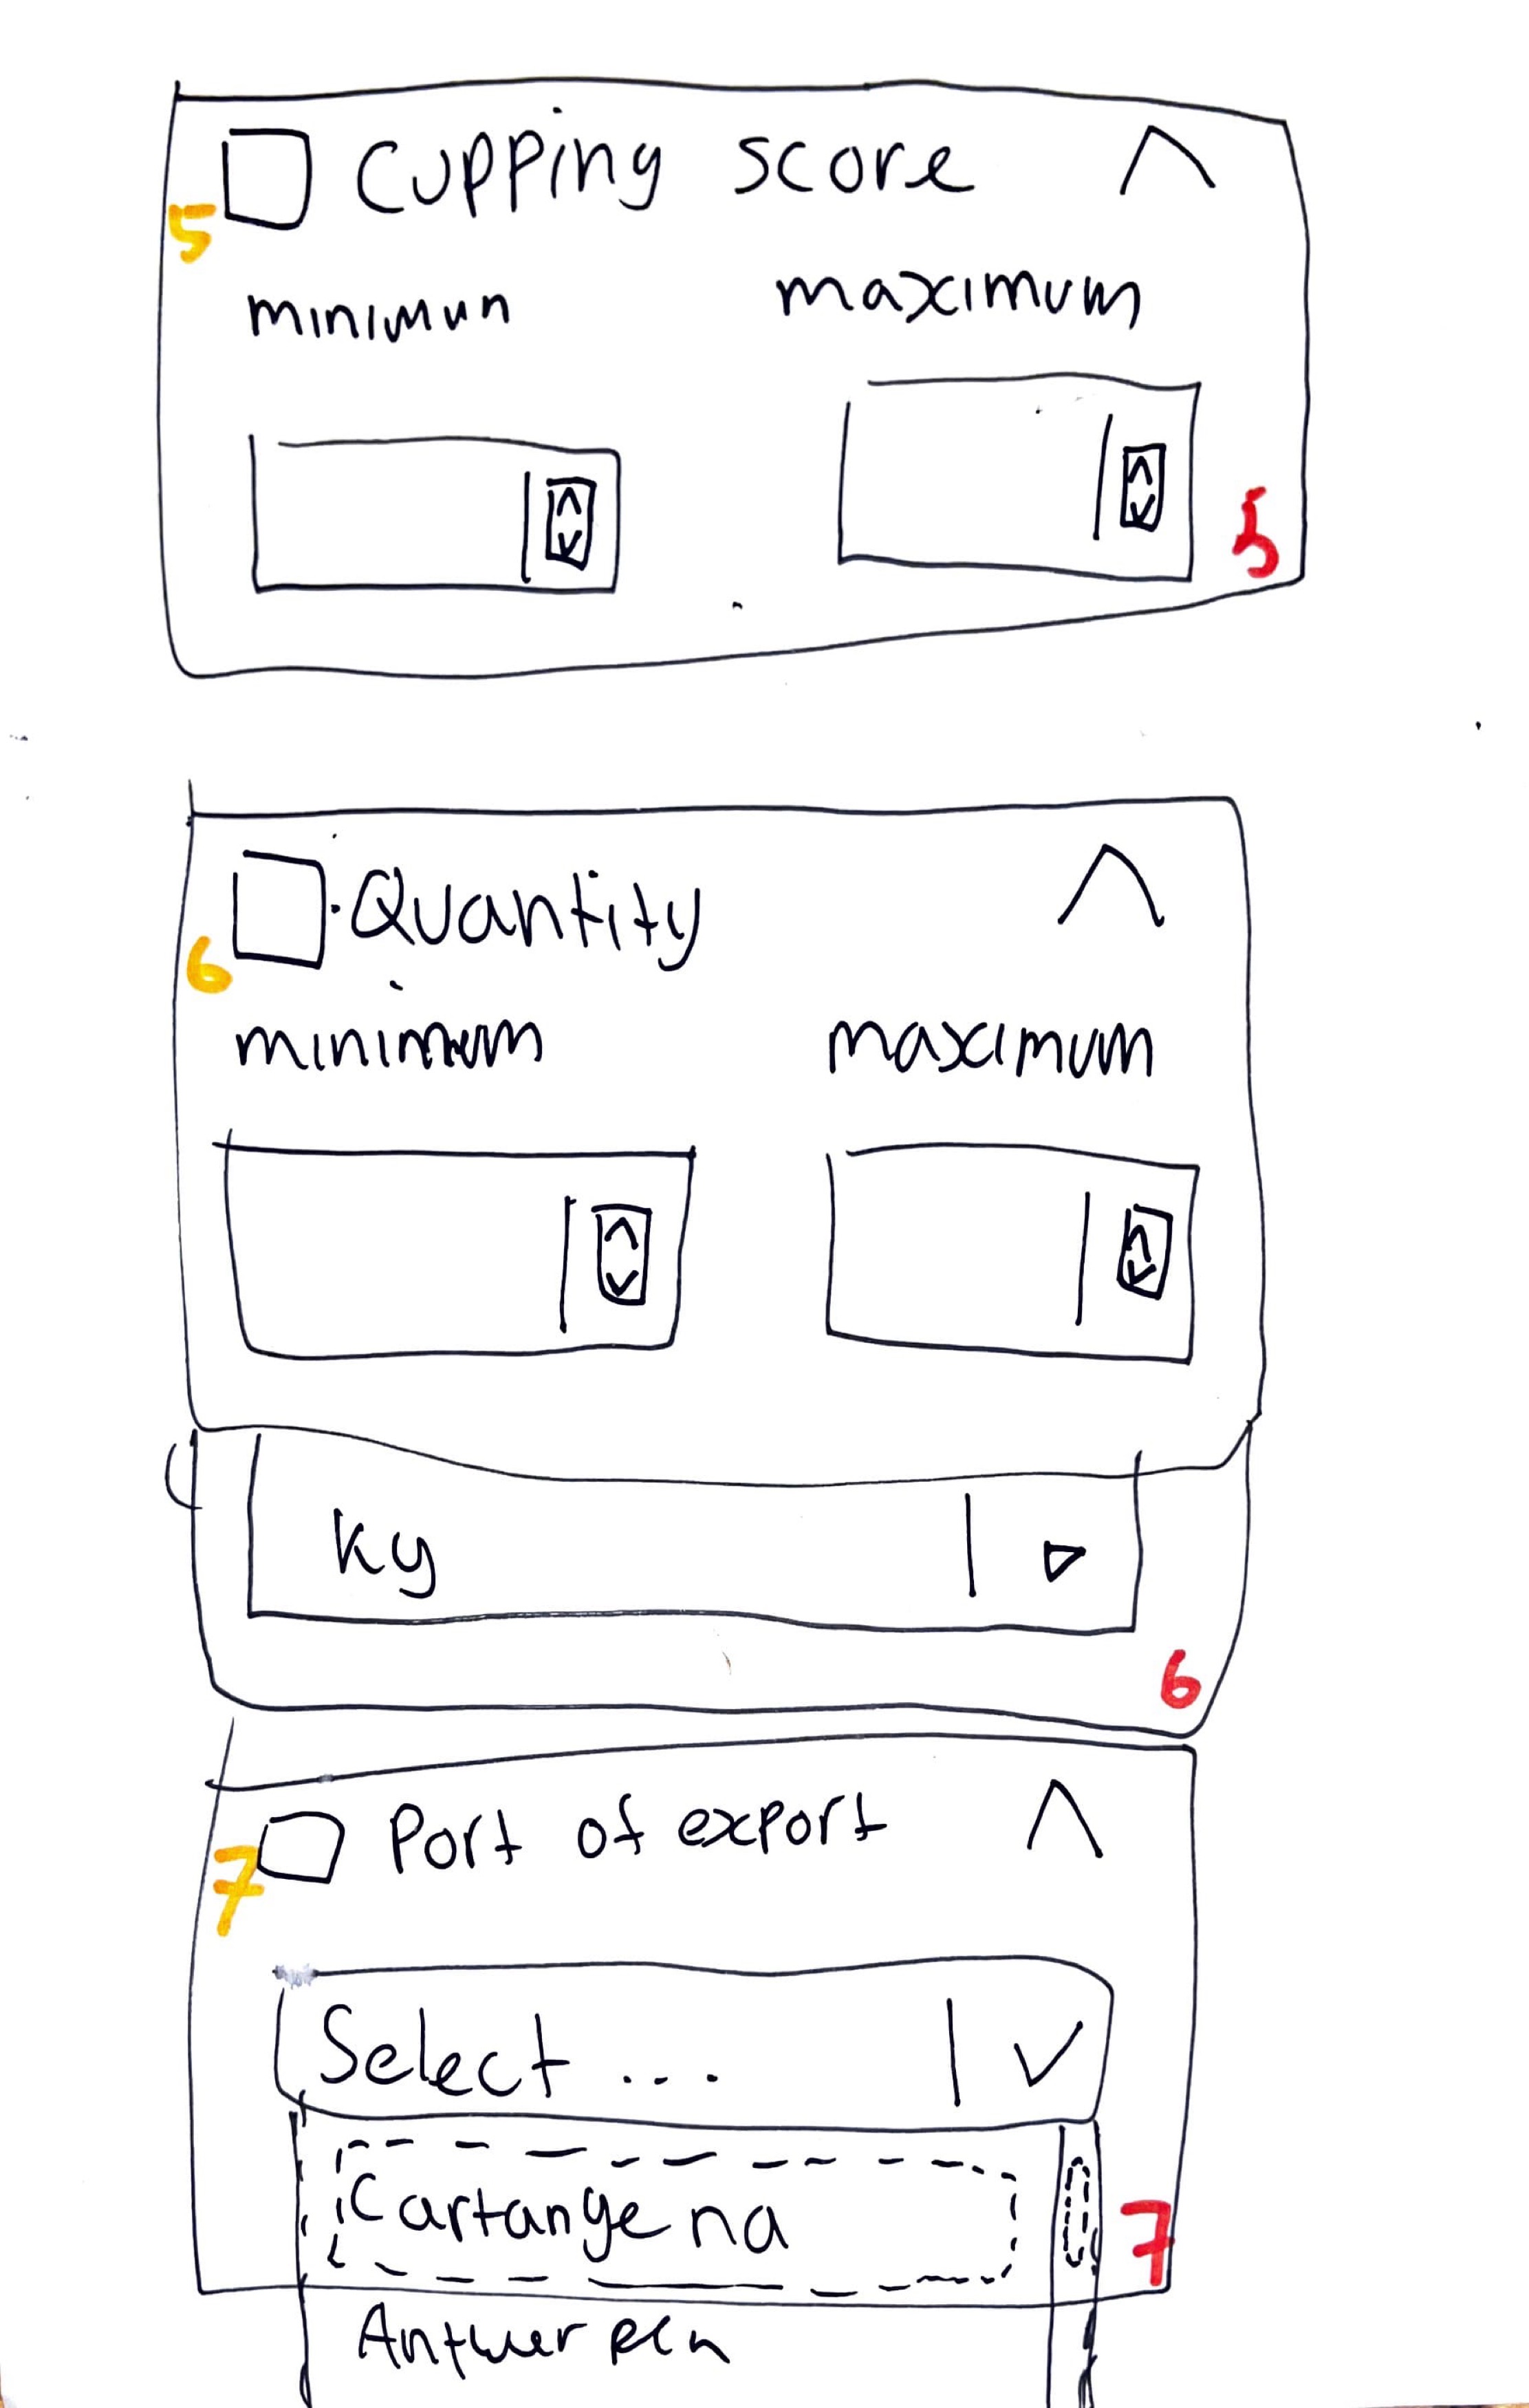 Cupping score
5
minimun maximum
5
Quantity
6
minimum maximum
kg
6
Port of export
7
Select ...
Cartangena
7
Antwerpen